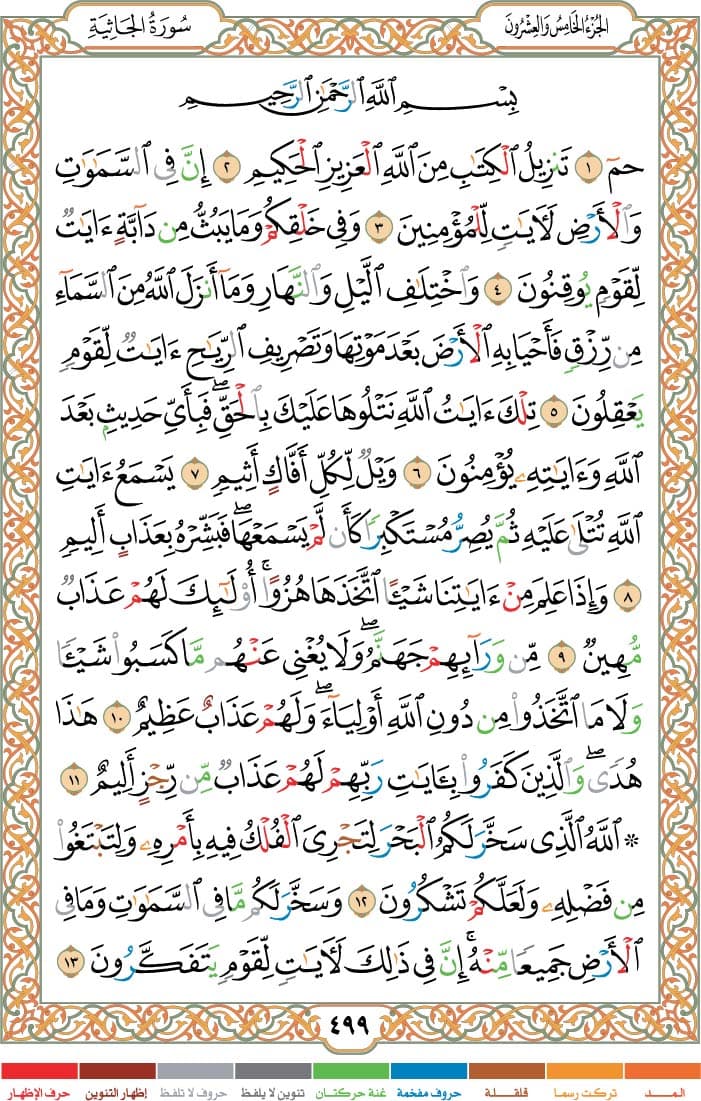 الجزء الخامس والعشرون
سورة الجاثية
بِسْمِ اللَّهِ الرَّحْمَٰنِ الرَّحِيمِ
حمٓ ١ تَنزِيلُ ٱلْكِتَٰبِ مِنَ ٱللَّهِ ٱلْعَزِيزِ ٱلْحَكِيمِ ٢ إِنَّ فِى ٱلسَّمَٰوَٰتِ
وَٱلْأَرْضِ لَءَايَٰتٍ لِّلْمُؤْمِنِينَ ٣ وَفِى خَلْقِكُمْ وَمَا يَبُثُّ مِن دَآبَّةٍ ءَايَٰتٌ
لِّقَوْمٍ يُوقِنُونَ ٤ وَٱخْتِلَٰفِ ٱلَّيْلِ وَٱلنَّهَارِ وَمَآ أَنزَلَ ٱللَّهُ مِنَ ٱلسَّمَآءِ
مِن رِّزْقٍ فَأَحْيَا بِهِ ٱلْأَرْضَ بَعْدَ مَوْتِهَا وَتَصْرِيفِ ٱلرِّيَٰحِ ءَايَٰتٌ لِّقَوْمٍ
يَعْقِلُونَ ٥ تِلْكَ ءَايَٰتُ ٱللَّهِ نَتْلُوهَا عَلَيْكَ بِٱلْحَقِّ ۖ فَبِأَىِّ حَدِيثٍۭ بَعْدَ
ٱللَّهِ وَءَايَٰتِهِۦ يُؤْمِنُونَ ٦ وَيْلٌ لِّكُلِّ أَفَّاكٍ أَثِيمٍ ٧ يَسْمَعُ ءَايَٰتِ
ٱللَّهِ تُتْلَىٰ عَلَيْهِ ثُمَّ يُصِرُّ مُسْتَكْبِرًا كَأَن لَّمْ يَسْمَعْهَا ۖ فَبَشِّرْهُ بِعَذَابٍ أَلِيمٍ
٨ وَإِذَا عَلِمَ مِنْ ءَايَٰتِنَا شَيْـًٔا ٱتَّخَذَهَا هُزُوًا ۚ أُو۟لَٰٓئِكَ لَهُمْ عَذَابٌ
مُّهِينٌ ٩ مِّن وَرَآئِهِمْ جَهَنَّمُ ۖ وَلَا يُغْنِى عَنْهُم مَّا كَسَبُوا۟ شَيْـًٔا
وَلَا مَا ٱتَّخَذُوا۟ مِن دُونِ ٱللَّهِ أَوْلِيَآءَ ۖ وَلَهُمْ عَذَابٌ عَظِيمٌ ١٠ هَٰذَا
هُدًى ۖ وَٱلَّذِينَ كَفَرُوا۟ بِـَٔايَٰتِ رَبِّهِمْ لَهُمْ عَذَابٌ مِّن رِّجْزٍ أَلِيمٌ ١١
۞ ٱللَّهُ ٱلَّذِى سَخَّرَ لَكُمُ ٱلْبَحْرَ لِتَجْرِىَ ٱلْفُلْكُ فِيهِ بِأَمْرِهِۦ وَلِتَبْتَغُوا۟
مِن فَضْلِهِۦ وَلَعَلَّكُمْ تَشْكُرُونَ ١٢ وَسَخَّرَ لَكُم مَّا فِى ٱلسَّمَٰوَٰتِ وَمَا فِى
ٱلْأَرْضِ جَمِيعًا مِّنْهُ ۚ إِنَّ فِى ذَٰلِكَ لَءَايَٰتٍ لِّقَوْمٍ يَتَفَكَّرُونَ ١٣
٤٩٩
المـــد تركت رسما قلقـلـة حروف مفخمة غنة حركتان تنوين لا يلفظ حروف لا تلفظ إظهار التنوين حرف الإظهار